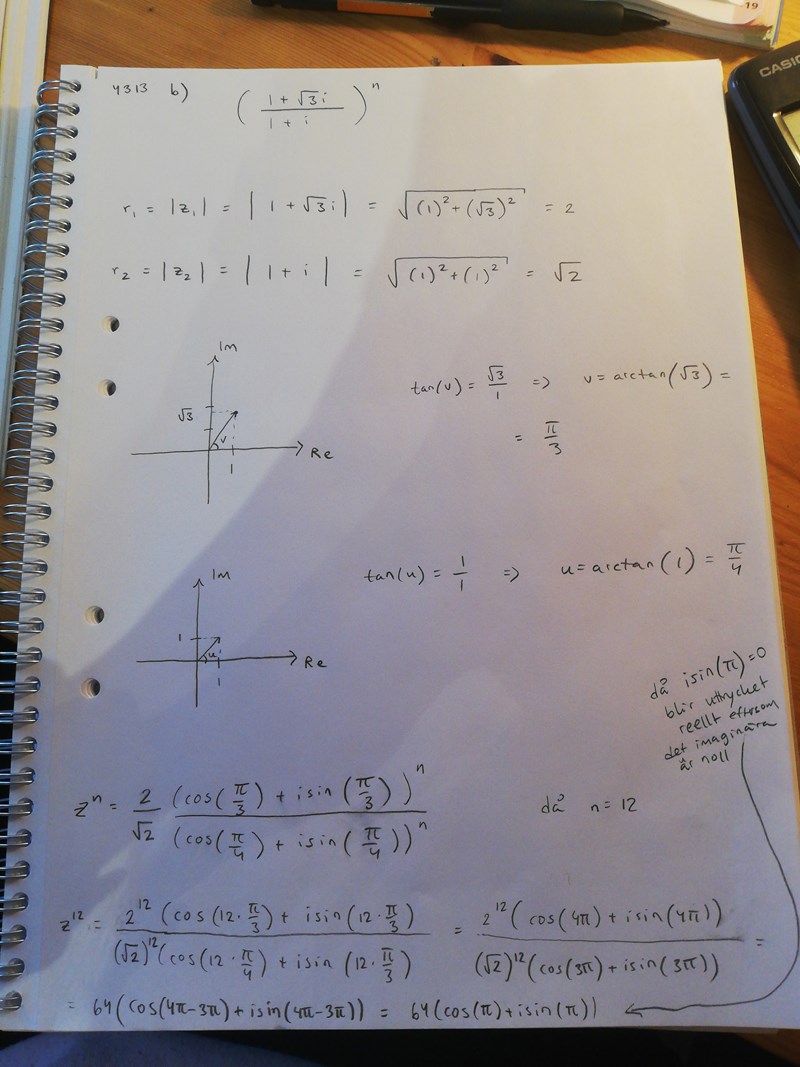 19
CASIO
4313 b) ((1 + √3 i)/(1 + i))^n
r₁ = |z₁| = | 1 + √3 i | = √((1)² + (√3)²) = 2
r₂ = |z₂| = | 1 + i | = √((1)² + (1)²) = √2
Im
√3
v
1
Re
tan(v) = √3/1 => v = arctan(√3) =
= π/3
Im
1
u
1
Re
tan(u) = 1/1 => u = arctan(1) = π/4
då isin(π) = 0
blir uttrycket
reellt eftersom
det imaginära
är noll
zⁿ = 2/√2 (cos(π/3) + isin(π/3))ⁿ/(cos(π/4) + isin(π/4))ⁿ då n = 12
z¹² = 2¹²(cos(12·π/3) + isin(12·π/3))/((√2)¹²(cos(12·π/4) + isin(12·π/3)) = 2¹²(cos(4π) + isin(4π))/((√2)¹²(cos(3π) + isin(3π))) =
= 64(cos(4π-3π) + isin(4π-3π)) = 64(cos(π) + isin(π))